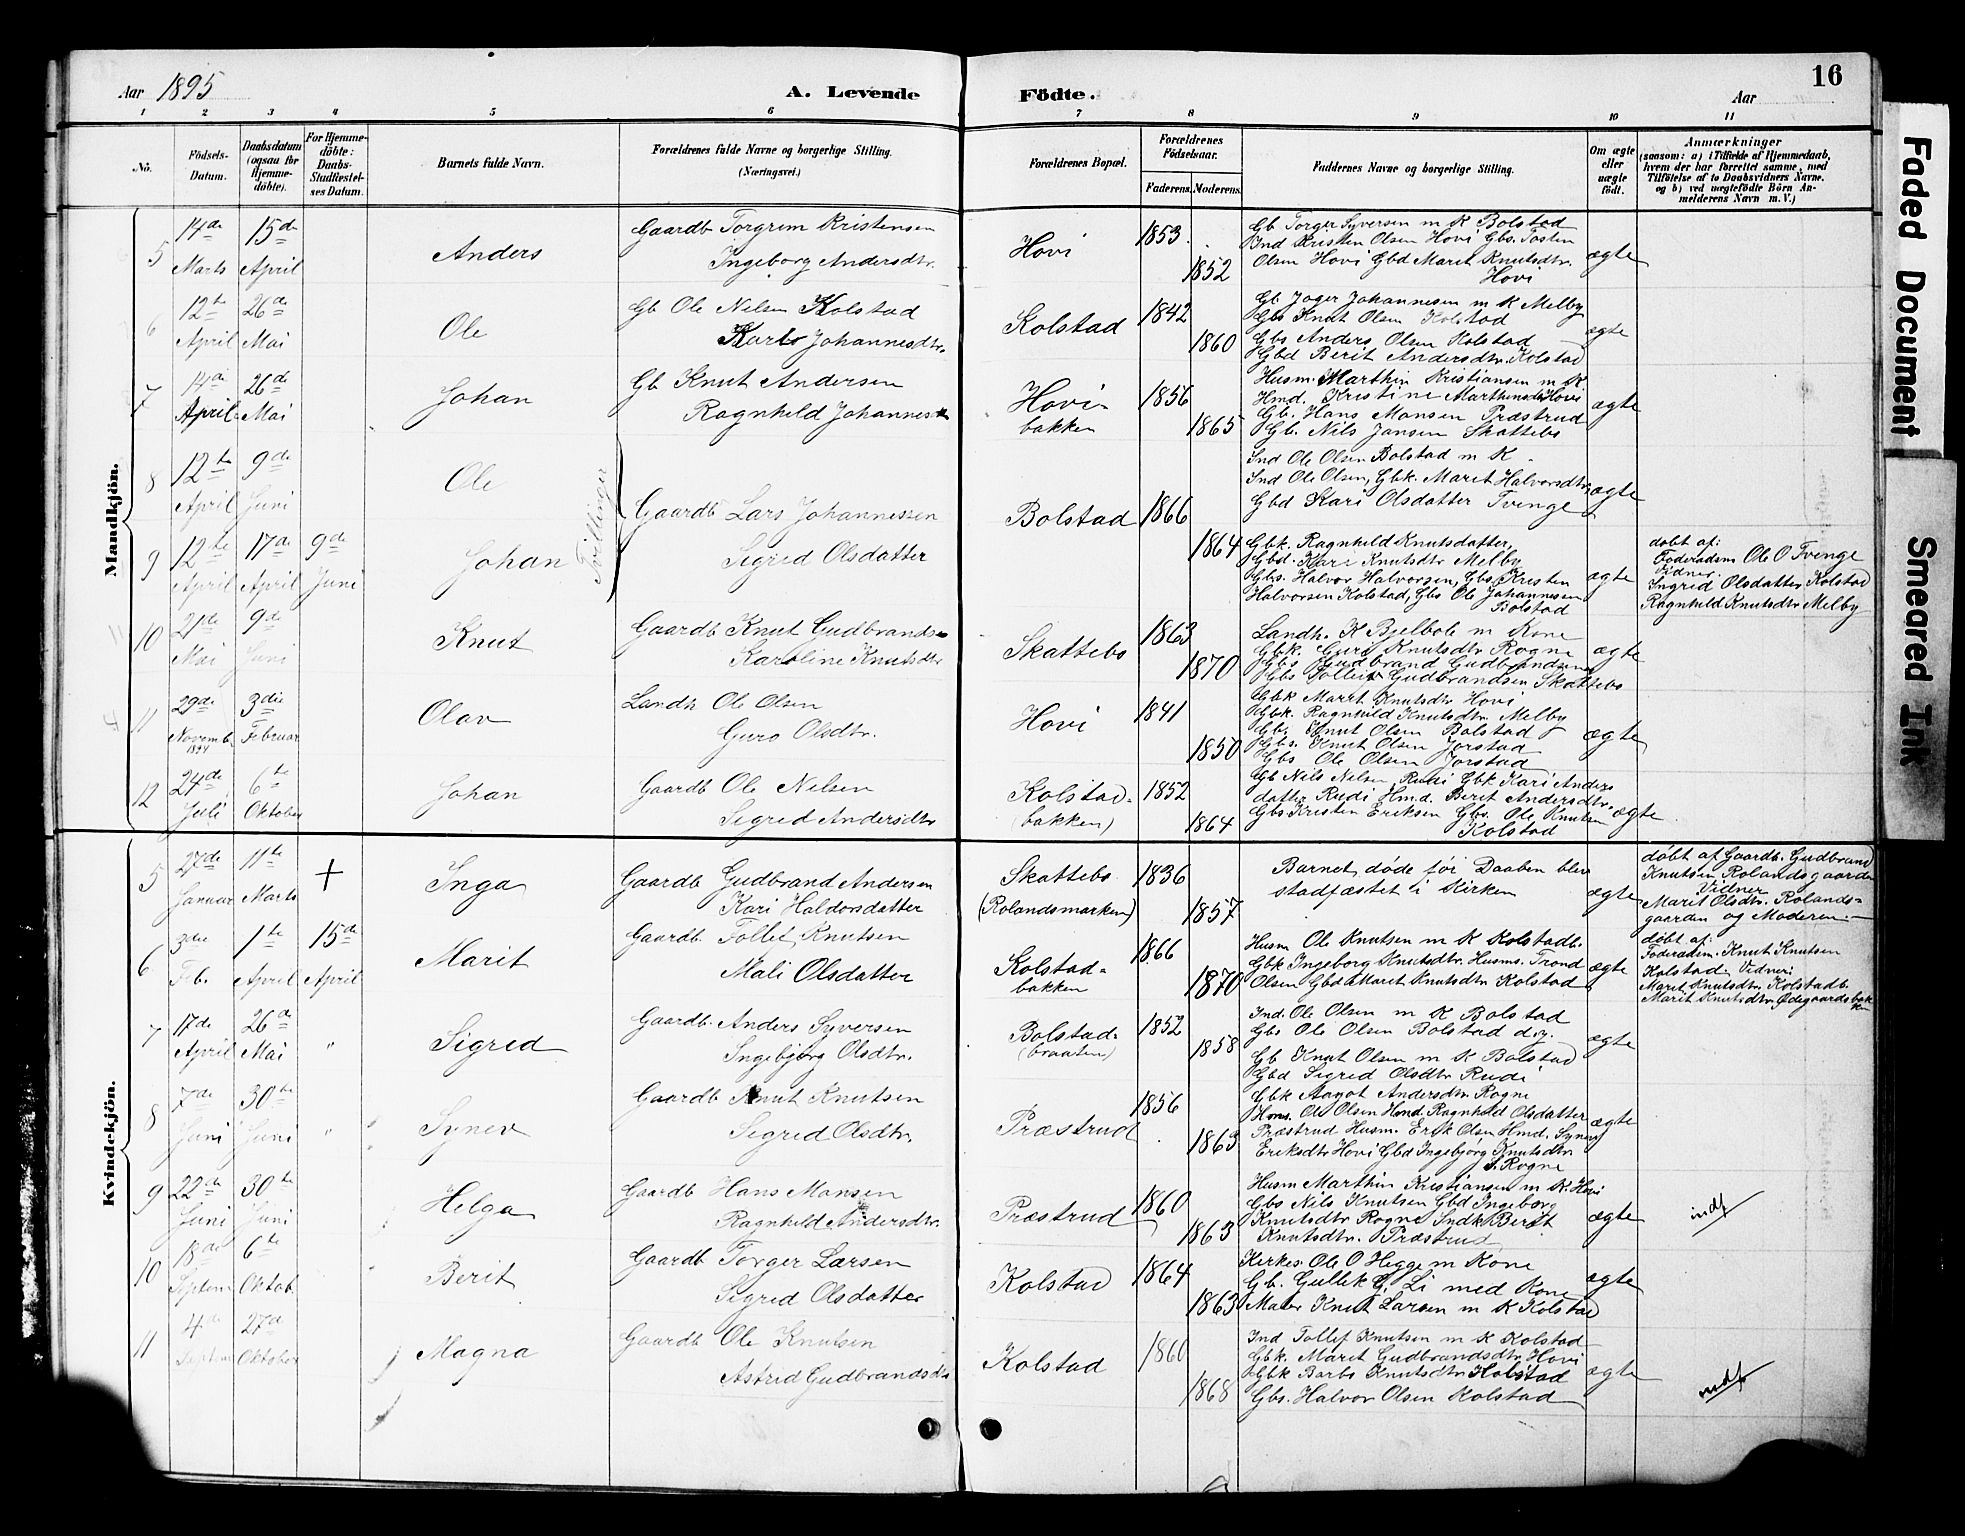 Aar 1895
A. Levende Födte.
Aar
16
1 2 3 4 5 6 7 8 9 10 11
No.
Födsels-Datum.
Daabsdatum (ogsaa for Hjemme-döbte).
For Hjemme-döbte: Daabs-Stadfæstel-ses Datum.
Barnets fulde Navn.
Forældrenes fulde Navne og borgerlige Stilling. (Næringsvei.)
Forældrenes Bopæl.
Forældrenes Födselsaar.
Faderens. Moderens.
Faddernes Navne og borgerlige Stilling.
Om ægte eller uægte födt.
Anmærkninger
(saasom: a) i Tilfælde af Hjemmedaab, hvem der har forrettet samme, med Tilföielse af to Daabsvidners Navne, og b) ved uægtefödte Börn An-melderens Navn m. V.)
Mandkjön.
5 14de Marts 15de April Anders
Gaardb Torgrim Kristensen
Ingeborg Andersdtr.
Hovi 1853 1852
Gb Torger Syversen m K Bolstad
Ind Kristen Olsen Hovi Gbs. Tosten
Olsen Hovi Gbd Marit Knutsdtr.
Hovi
ægte
6 12te April 26de Mai Ole
Gb Ole Nilsen Kolstad
Kari Johannesdtr.
Kolstad 1842 1860
Gb Joger Johannesen m K Melby
Gbs Knut Olsen Kolstad
Gbs Anders Olsen Kolstad
Gbd Berit Andersdtr. Kolstad
ægte
7 14de April 26de Mai Johan
Gb Knut Andersen
Ragnhild Johannes
Hovi-bakken 1856 1865
Husm. Marthin Kristiansen m K.
Hmd. Kristine Marthinsdtr Hovi
Gb. Hans Monsen Præstrud
Gb. Nils Jansen Skattebo
ægte
8 12te April 9de Juni Ole
Tvillinger
Gaardb Lars Johannessen
Sigrid Olsdatter
Bolstad 1866 1864
Ind Ole Olsen Bolstad m K
Ind Ole Olsen, Gbk. Marit Halvorsdtr,
Gbd Kari Olsdatter Tvenge
ægte
9 12te April 17de April 9de Juni Johan
Gbk. Ragnhild Knutsdatter,
Gbd. Kari Knutsdtr Melby
Gbs. Halvor Halvorsen, Gbs. Kristen
Halvorsen Kolstad, Gbs Ole Johannesen
Bolstad
ægte
døbt af:
Føderaadsm Ole O Tvenge
Vidner.
Ingrid Olsdatter Kolstad
Ragnhild Knutsdtr Melby
10 21de Mai 9de Juni Knut
Gaardb Knut Gudbrands.
Karoline Knutsdtr
Skattebo 1863 1870
Landh. K Bjelbole m Kone
Gbk. Guro Knutsdtr Rogne
Gbs Gudbrand Gudbrandsen
Gbs Tollef Gudbrandsen Skattebo
ægte
11 29de Novemb. 1894 3die Februar Olav
Landh Ole Olsen
Guro Olsdtr.
Hovi 1841 1850
Gbk Marit Knutsdtr Hovi
Gbk. Ragnhild Knutsdtr. Melby
Gb. Knut Olsen Bolstad
Gbs. Knut Olsen Jorstad
Gbs Ole Olsen Jorstad
ægte
12 24de Juli 6te Oktober Johan
Gaardb Ole Nilsen
Sigrid Andersdtr
Kolstad-(bakken) 1852 1864
Gb Nils Nelsen Rudi Gbk Kari Anders
datter Rudi Hmd. Berit Andersdtr.
Gbs Kristen Eriksen Gbs. Ole Knutsen
Kolstad
ægte
Kvindekjön.
5 27de Januar 11te Marts + Inga
Gaardb Gudbrand Andersen
Kari Haldorsdatter
Skattebo (Rolandsmarken) 1836 1857
Barnet døde før Daaben blev
stadfæstet i Kirken
ægte
døbt af Gaardb. Gudbrand
Knutsen Rolandsgaarden
Vidner
Marit Olsdtr. Rolands-
gaarden og Moderen.
6 3die Feb. 1te April 15de April Marit
Gaardb. Tollef Knutsen
Mali Olsdatter
Kolstad-bakken 1866 1870
Husm Ole Knutsen m K Kolstadb.
Gbk Ingeborg Knutsdtr. Husms. Trond
Olsen Gbd Marit Knutsdtr Kolstad
ægte
døbt af:
Føderaadm. Knut Knutsen
Kolstad. Vidner:
Marit Knutsdtr. Kolstadb.
Marit Knutsdtr. Ødegaardsbakken
7 17de April 26de Mai " Sigrid
Gaardb. Anders Syversen
Ingebjørg Olsdtr.
Bolstad-(braaten) 1852 1858
Ind. Ole Olsen m K Bolstad
Gbs Ole Olsen Bolstad d.y.
Gb Knut Olsen m K Bolstad
Gbd Sigrid Olsdtr Rudi
ægte
8 7de Juni 30te Juni " Synev
Gaardb Knut Knutsen
Sigrid Olsdtr.
Præstrud 1856 1863
Gbk Aagot Andersdtr Rogne
Hms. Ole Olsen Hmd. Ragnhild Olsdatter
Præstrud Husm. Erik Olsen Hmd. Synev
Eriksdtr Hovi Gbd Ingebjørg Knutsdtr
S. Rogne
ægte
9 22de Juni 30te Juni Helga
Gaardb Hans Monsen
Ragnhild Andersdtr.
Præstrud 1860 1863
Husm Marthin Kristiansen m K. Hovi
Gbs Nils Knutsen Gbd Ingeborg
Knutsdtr Rogne Indk Berit
Knutsdtr. Præstrud
ægte
indf
10 18de Septem 6te Oktob. Berit
Gaardb Torger Larsen
Sigrid Olsdatter
Kolstad 1864 1863
Kirkes. Ole O Hegge m Kone
Gb. Gullik G. Li med Kone
Maler Knut Larsen m K Kolstad
ægte
11 4de Septem 27de Oktober Magna
Gaardb Ole Knutsen
Astrid Gudbrandsdtr
Kolstad 1860 1868
Ind Tollef Knutsen m K Kolstad
Gbk. Marit Gudbrandsdtr. Hovi
Gbk Barbo Knutsdtr Kolstad
Gbs. Halvor Olsen Kolstad
ægte
indf
Faded Document
Smeared Ink